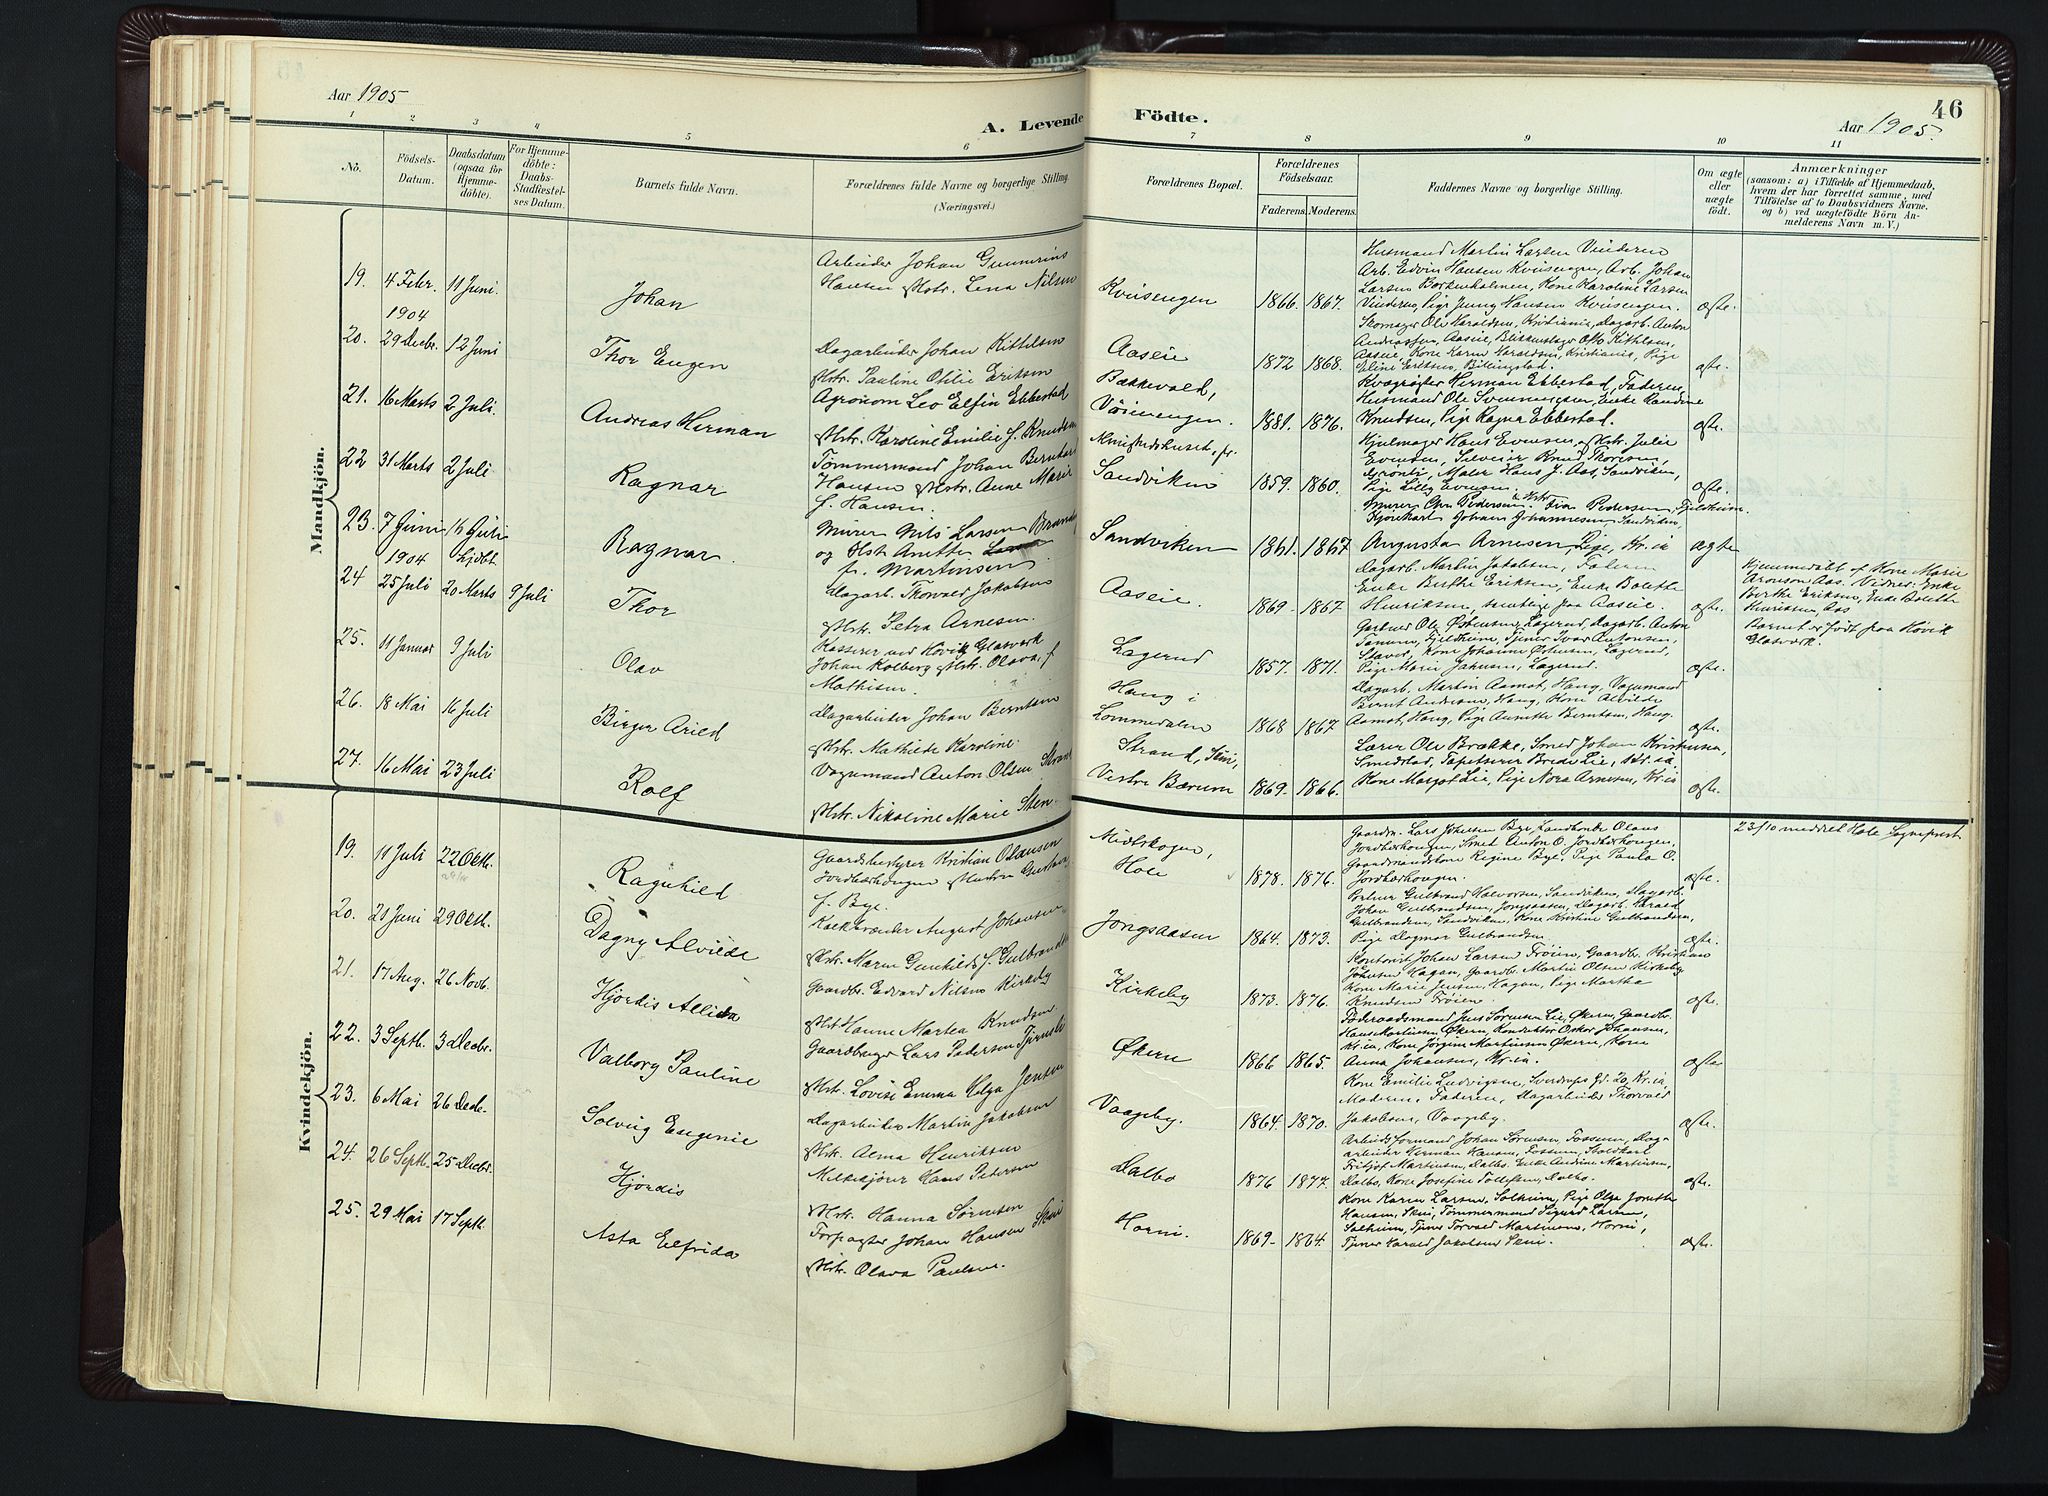 Aar 1905
A. Levende Födte.
46
Aar 1905.
1 2 3 4 5 6 7 8 9 10 11
No.
Födsels-Datum.
Daabsdatum (ogsaa for Hjemme-döbte).
For Hjemme-döbte: Daabs-Stadfæstel-ses Datum.
Barnets fulde Navn.
Forældrenes fulde Navne og borgerlige Stilling.
(Næringsvei.)
Forældrenes Bopæl.
Forældrenes Födselsaar.
Faderens. Moderens.
Faddernes Navne og borgerlige Stilling.
Om ægte eller uægte födt.
Anmærkninger
(saasom: a) i Tilfælde af Hjemmedaab,
hvem der har forrettet samme, med
Tilföielse af to Daabsvidners Navne,
og b) ved uægtefödte Börn An-
melderens Navn m. V.)
Mandkjön.
19. 4 Febr. 11 Juni. Johan
Arbeider Johan
Hansen Hstr. Lena Nilsen
Kvisengen 1866. 1867.
Husmand Martin Larsen Vinderen
Arb. Edvin Hansen Kvisengen, Arb. Johan
Larsen Kone Karoline Larsen
Vinderen, Pige Jenny Hansen Kvisengen.
ægte.
1904
20. 29 Decbr. 12 Juni Thor Eugen
Dagarbeider Johan Kittilsen
Hstr. Pauline Otilie Eriksen
Aaseie 1872 1868.
Skomager Ole Haraldsen, Kristiania, Dagarb. Anton
Andreassen, Aaseie, Blikkenslager Otto Kittilsen,
Aaseie, Kone Karen Haraldsen, Kristiania, Pige
Eline Eriksen, Billingstad.
ægte.
21. 16 Marts 2 Juli. Andreas Herman
Agronom Leo Elfin Ebbestad
Hstr. Karoline Emilie f. Knudsen
Bækkevold,
1881. 1876.
Herman Ebbestad, Faderen,
Husmand Ole Enke Randine
Knudsen, Pige Ragna Ebbestad.
ægte.
22 31 Marts 2 Juli. Ragnar
Tömmermand Johan Berntard
Hansen Hstr. Anne Marie
f. Hansen.
Sandviken 1859. 1860.
Hjulmager Hans Evensen, Hstr. Julie
Evensen, Knud Thoresen,
Maler Hans J. Aas, Sandviken,
Pige Lilly Evensen.
ægte.
23. 7 Juni 16 Juli Ragnar.
Murer Nils Larsen
og Hst. Anette
f. Martinsen
Sandviken 1861. 1867
Murer Chr. Pedersen, Hstr. Eva Pedersen, Fjeldheim.
Johan Johannesen, Sandviken,
Augusta Arnesen, Pige, Kr.ia
ægte
1904 hjdbt
24 25 Juli 20 Marts 9 Juli Thor
Dagarb. Thorvald Jakobsen
Hstr. Petra Arnesen.
Aaseie. 1869 - 1867
Dagarb. Martin Jakobsen, Faderen
Enke Berthe Eriksen, Enke Bolethe
Henriksen, samtlige fra Aaseie.
ægte.
Hjemmedöbt af Kone Marie
Aronson Aas. Vidner: Enke
Berthe Eriksen, Enke Bolethe
Henriksen, Aas
Barnet er födt paa Hövik
Glasværk.
25. 11 Januar 9 Juli Olav
Kasserer ved Hövik Glasværk
Johan Kolberg Hstr. Olava, f.
Mathisen.
Lagerud 1857. 1871.
Gartner Ole Östensen, Lagerud, Dagarb. Anton
Fjeldheim, Tjener Ivar Antonsen,
Kone Johanne Östensen, Lagerud,
Pige Marie Lagerud.
ægte.
26. 18 Mai 16 Juli Birger Arild
Dagarbeider Johan Berntsen
Hstr. Mathilde Karoline.
Haug i
Lommedalen 1868 1867
Dagarb. Martin Aamot, Haug, Vognmand
Bernt Andersen, Haug, Kone Alvilde
Aamot, Haug, Pige Annette Berntsen, Haug.
ægte.
27. 16 Mai 23 Juli Rolf
Vognmand Anton Olsen Strand
Hstr. Nikoline Marie Sten-
Strand,
Vestre Bærum 1869- 1866.
Lærer Ole Brække, Smed Johan Kristiansen,
Smedstad, Tapetserer Brede Lie, Kr.ia.
Kone Margot Lie, Pige Nora Arnesen, Kr.ia
ægte.
Kvindekjön.
19. 11 Juli 22 Okth. Ragnhild
Gaardsbestyrer Kristian Olausen
Jordbærhougen Hustru
f. Bye.
Midtskogen,
Hole 1878. 1876.
Gaardm. Lars Johnsen Bye, Landhandl. Olaus
Jordbærhougen, Smed Anton O. Jordbærhougen,
Gaardmandskone Regine Bye, Pige Paula O.
Jordbærhougen.
ægte.
23/10 meddelt Hole Sogneprest
20. 21 Juni 29 Okth. Dagny Alvilde
Kalkbrænder August Johansen
Hstr. Maren Gunhilda f. Gulbrandsen
Jongsaasen 1864. 1873.
Portner Gulbrand Halvorsen, Sandviken, Dagarb.
Johan Gulbrandsen, Jongsaasen, Dagarb. Harald
Gulbrandsen, Sandviken, Kone Kristine Gulbrandsen,
Pige Dagmar Gulbrandsen
ægte.
21. 17 Aug. 26 Novb. Hjördis Allida
Gaardbr. Edvard Nilsen Kirkeby
Hst Hanne Martea Knudsen
Kirkeby 1873. 1876.
Kontorist Johan Larsen Fröien, Gaardbr. Kristian
Johnsen Hagan, Gaardbr. Martin Olsen Kirkeby,
Kone Marie Jensen, Hagan, Pige Martha
Knudsen Fröien.
ægte.
22. 3 Septh. 3 Decbr. Valborg Pauline
Gaardbruger Lars Pedersen
Hstr. Lovise Emma Helga Jensen
Økern 1866 1865.
Föderaadsmand Jens Sörensen Lie, Økern, Gaardbr.
Hans Martinsen Økern, Konduktör Oskar Johansen,
Kr.ia, Kone Jörgine Martinsen Økern, Kone
Anna Johansen, Kr.ia.
ægte
23. 6 Mai 26 Decbr. Solveig Eugenie
Dagarbeider Martin Jakobsen
Hstr. Alma Henriksen
Vaageby. 1864. 1870.
Kone Emilie Ludvigsen, Sverdrups Gd. 20, Kr.ia,
Moderen, Faderen, Dagarbeider Thorvald
Jakobsen, Vaageby.
ægte.
24. 26 Septh. 25 Decbr. Hjördis
Melkekjörer Hans Pedersen
Hstr. Hanna Sörensen
Dalbo 1876 1877.
Arbeidsformand Johan Sörensen, Fossum, Dag-
arbeider Herman Hansen, Fossum, Staldkarl
Fritjof Martinsen, Dalbo, Enke Andrine Martinsen,
Dalbo, Kone Josefine Tollefsen, Dalbo.
ægte.
25. 29 Mai 17 Septh. Asta Elfrida
Forpagter Johan Hansen Skui
Hstr. Olava Paulsen.
Horni. 1869- 1864
Kone Karen Larsen, Solheim, Pige Olga Jonette
Hansen, Skui, Tömmermand Sigurd Larsen,
Solheim, Tjener Torvald Martinsen, Horni,
Tjener Harald Jakobsen Skui.
ægte.